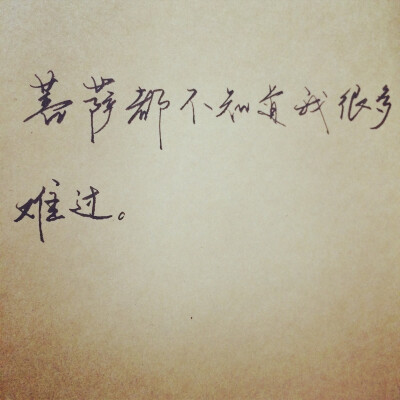 菩萨都不知道我很多
难过。